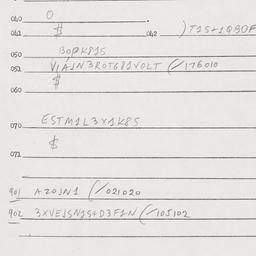 040 0
041 $ 042 )T1S+1Q80F
050 BOPK81S
051 V1AJN3ROTG81VOLT (/176010
060 $
070 ESTM1L3X1K8S
071 $
901 AZOJN1 (/021020
902 3XVEJSN1S+D3F1N (/105102